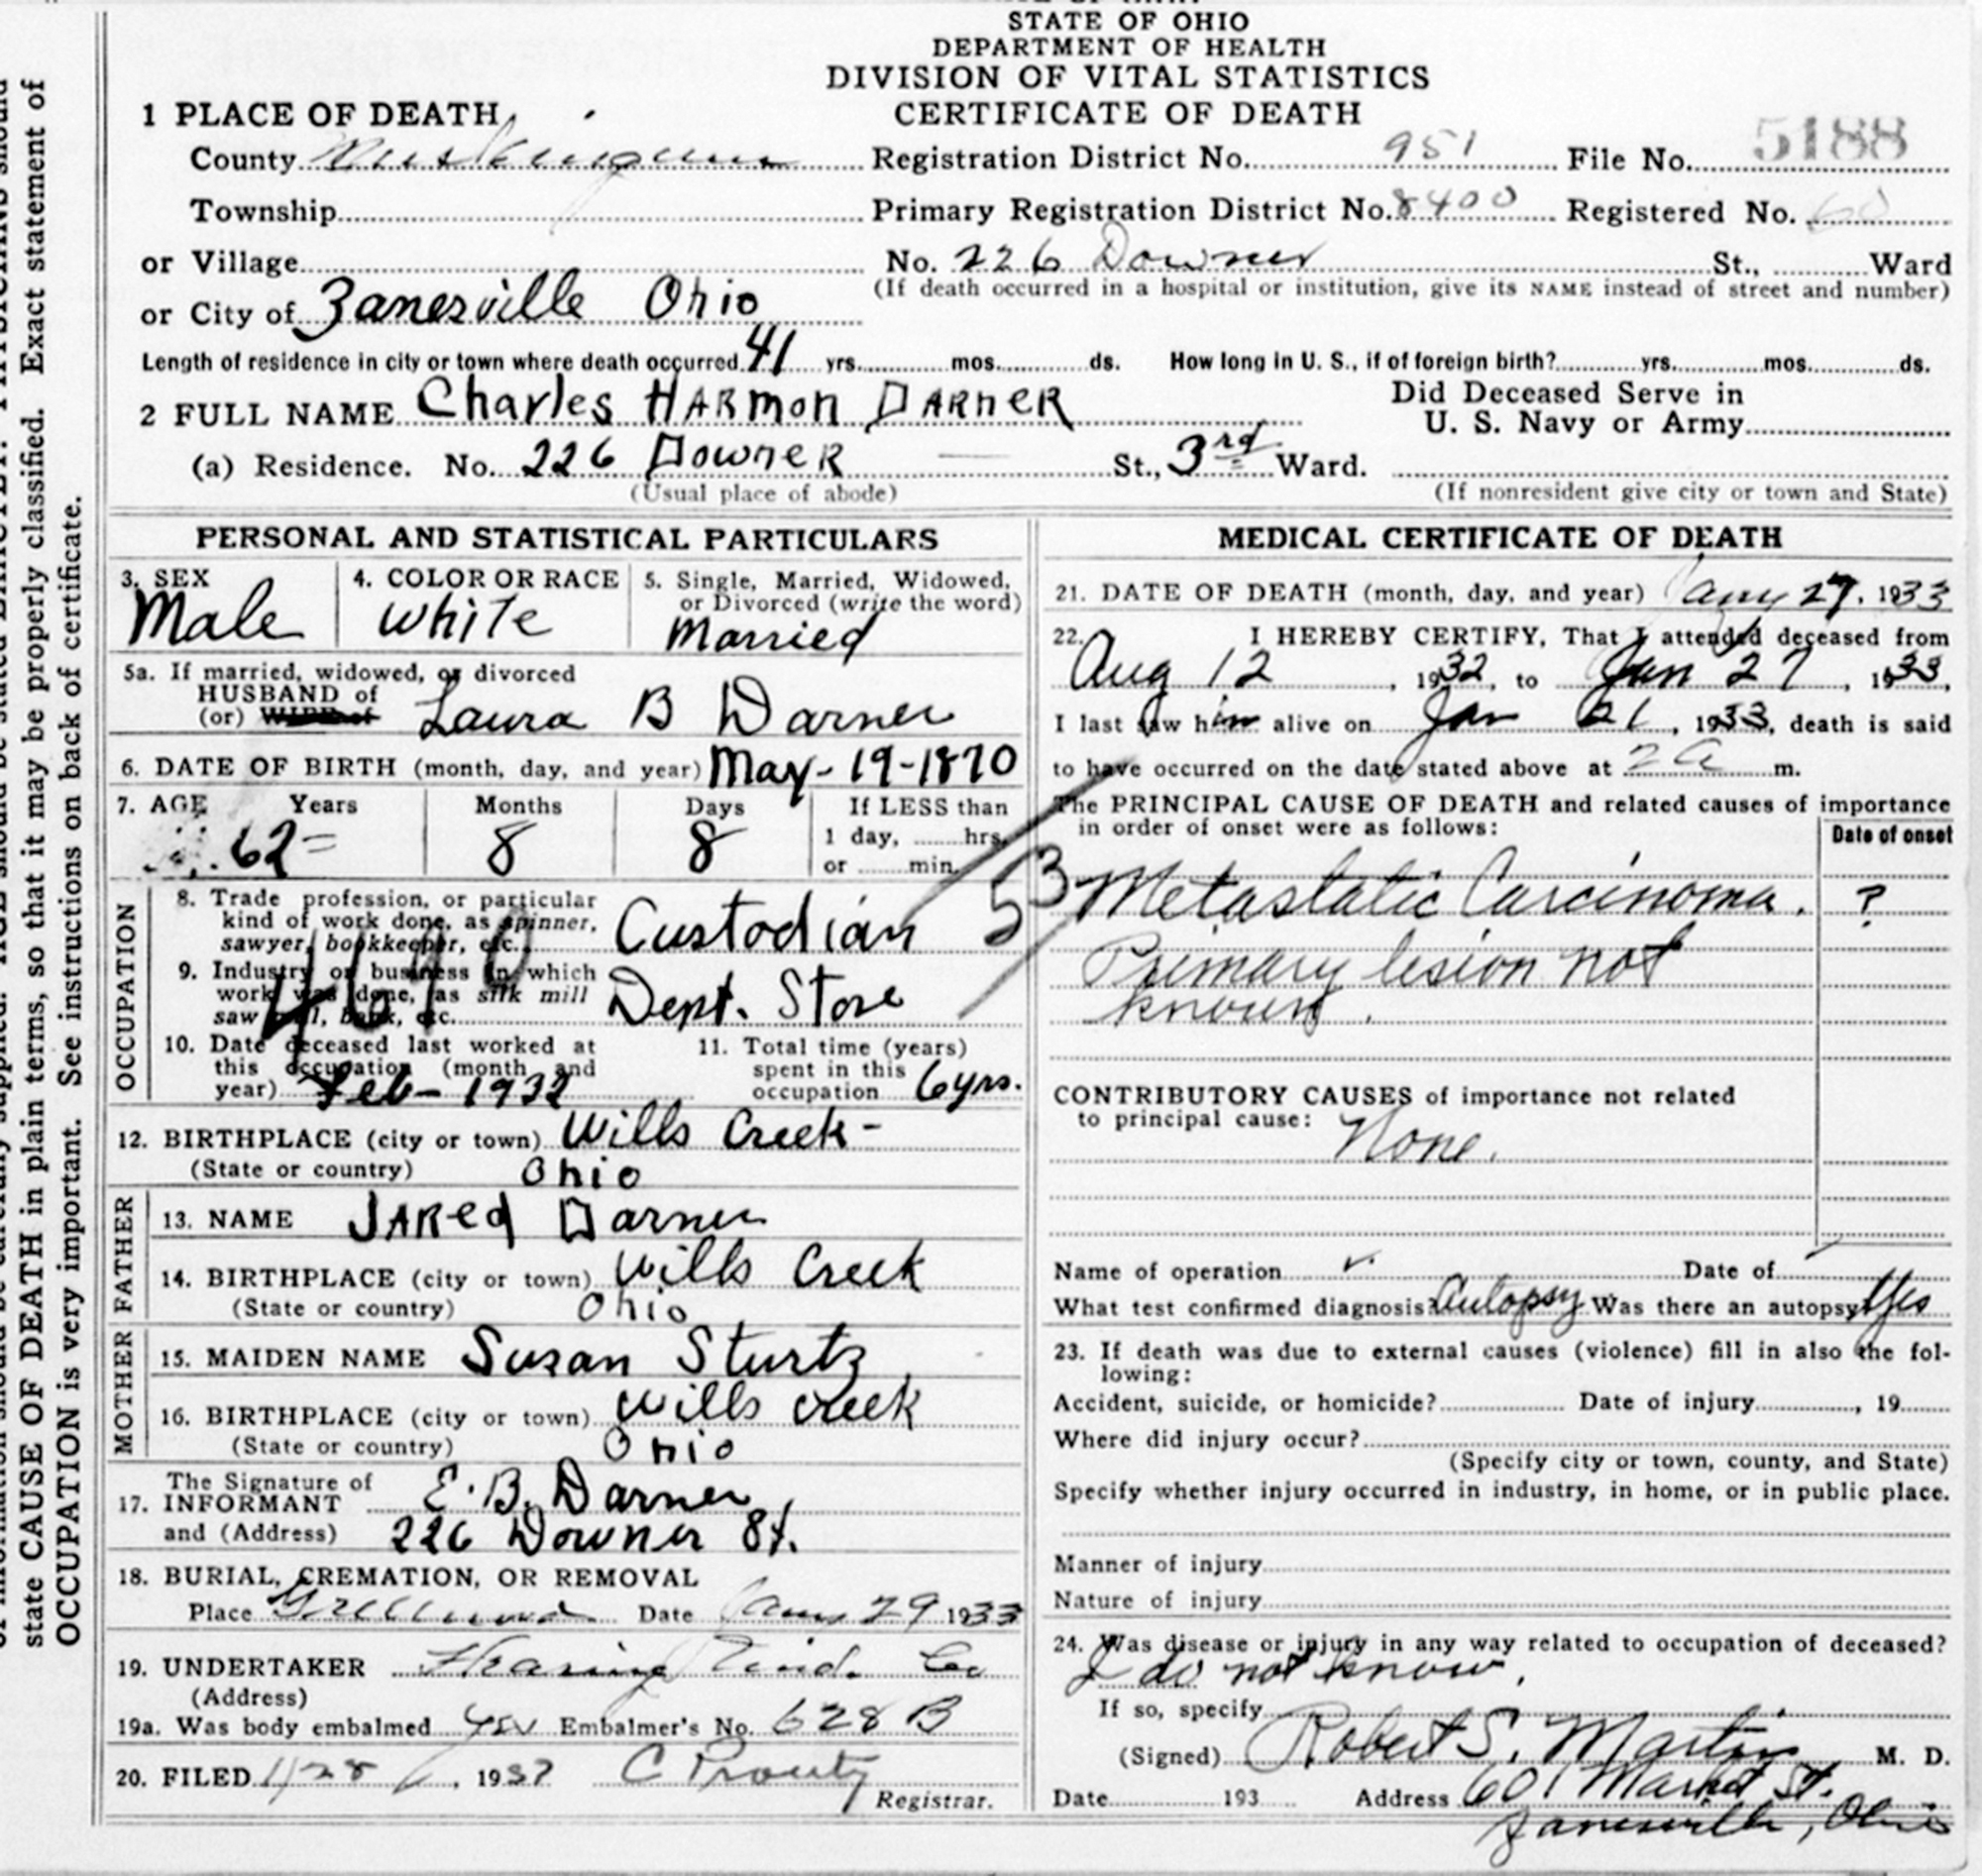 STATE OF OHIO
DEPARTMENT OF HEALTH
DIVISION OF VITAL STATISTICS
CERTIFICATE OF DEATH
1 PLACE OF DEATH
County Muskingum Registration District No. 951 File No. 5188
Township Primary Registration District No. 8400 Registered No. 60
or Village No. 226 Downer St., Ward
(If death occurred in a hospital or institution, give its NAME instead of street and number)
or City of Zanesville Ohio
Length of residence in city or town where death occurred 41 yrs. mos. ds. How long in U. S., if of foreign birth? yrs. mos. ds.
2 FULL NAME Charles HARmon DARNER
Did Deceased Serve in
U. S. Navy or Army
(a) Residence. No. 226 Downer St., 3rd Ward.
(Usual place of abode) (If nonresident give city or town and State)
PERSONAL AND STATISTICAL PARTICULARS
3. SEX 4. COLOR OR RACE 5. Single, Married, Widowed,
or Divorced (write the word)
Male White Married
5a. If married, widowed, or divorced
HUSBAND of
(or) WIFE of Laura B Darner
6. DATE OF BIRTH (month, day, and year) May-19-1870
7. AGE Years Months Days If LESS than
62 8 8 1 day, hrs.
or min.
OCCUPATION
8. Trade profession, or particular
kind of work done, as spinner,
sawyer, bookkeeper, etc. Custodian
9. Industry or business in which
work was done, as silk mill
saw mill, bank, etc. Dept. Store
4690
10. Date deceased last worked at
this occupation (month and
year) Feb-1932
11. Total time (years)
spent in this
occupation 6yrs.
12. BIRTHPLACE (city or town) Wills Creek-
(State or country) Ohio
FATHER
13. NAME JARed Darner
14. BIRTHPLACE (city or town) Wills Creek
(State or country) Ohio
MOTHER
15. MAIDEN NAME Susan Sturtz
16. BIRTHPLACE (city or town) Wills creek
(State or country) Ohio
The Signature of
17. INFORMANT E.B. Darner
and (Address) 226 Downer St.
18. BURIAL, CREMATION, OR REMOVAL
Place Greenwood Date Jany 29 1933
19. UNDERTAKER Co
(Address)
19a. Was body embalmed yes Embalmer's No. 628 B
20. FILED 1/28, 1933 C Prouty
Registrar.
MEDICAL CERTIFICATE OF DEATH
21. DATE OF DEATH (month, day, and year) Jany 27, 1933
22. I HEREBY CERTIFY, That I attended deceased from
Aug 12, 1932, to Jan 27, 1933,
I last saw him alive on Jan 21, 1933, death is said
to have occurred on the date stated above at 2 a m.
The PRINCIPAL CAUSE OF DEATH and related causes of importance
in order of onset were as follows:
Date of onset
53
Metastatic Carcinoma. ?
Primary lesion not
known.
CONTRIBUTORY CAUSES of importance not related
to principal cause:
None.
Name of operation Date of
What test confirmed diagnosis? Autopsy Was there an autopsy? Yes
23. If death was due to external causes (violence) fill in also the fol-
lowing:
Accident, suicide, or homicide? Date of injury , 19
Where did injury occur?
(Specify city or town, county, and State)
Specify whether injury occurred in industry, in home, or in public place.
Manner of injury
Nature of injury
24. Was disease or injury in any way related to occupation of deceased?
I do not know.
If so, specify
(Signed) Robert S. Martin M. D.
Date 193 Address 601 Market St.
Zanesville, Ohio
state CAUSE OF DEATH in plain terms, so that it may be properly classified. Exact statement of
OCCUPATION is very important. See instructions on back of certificate.